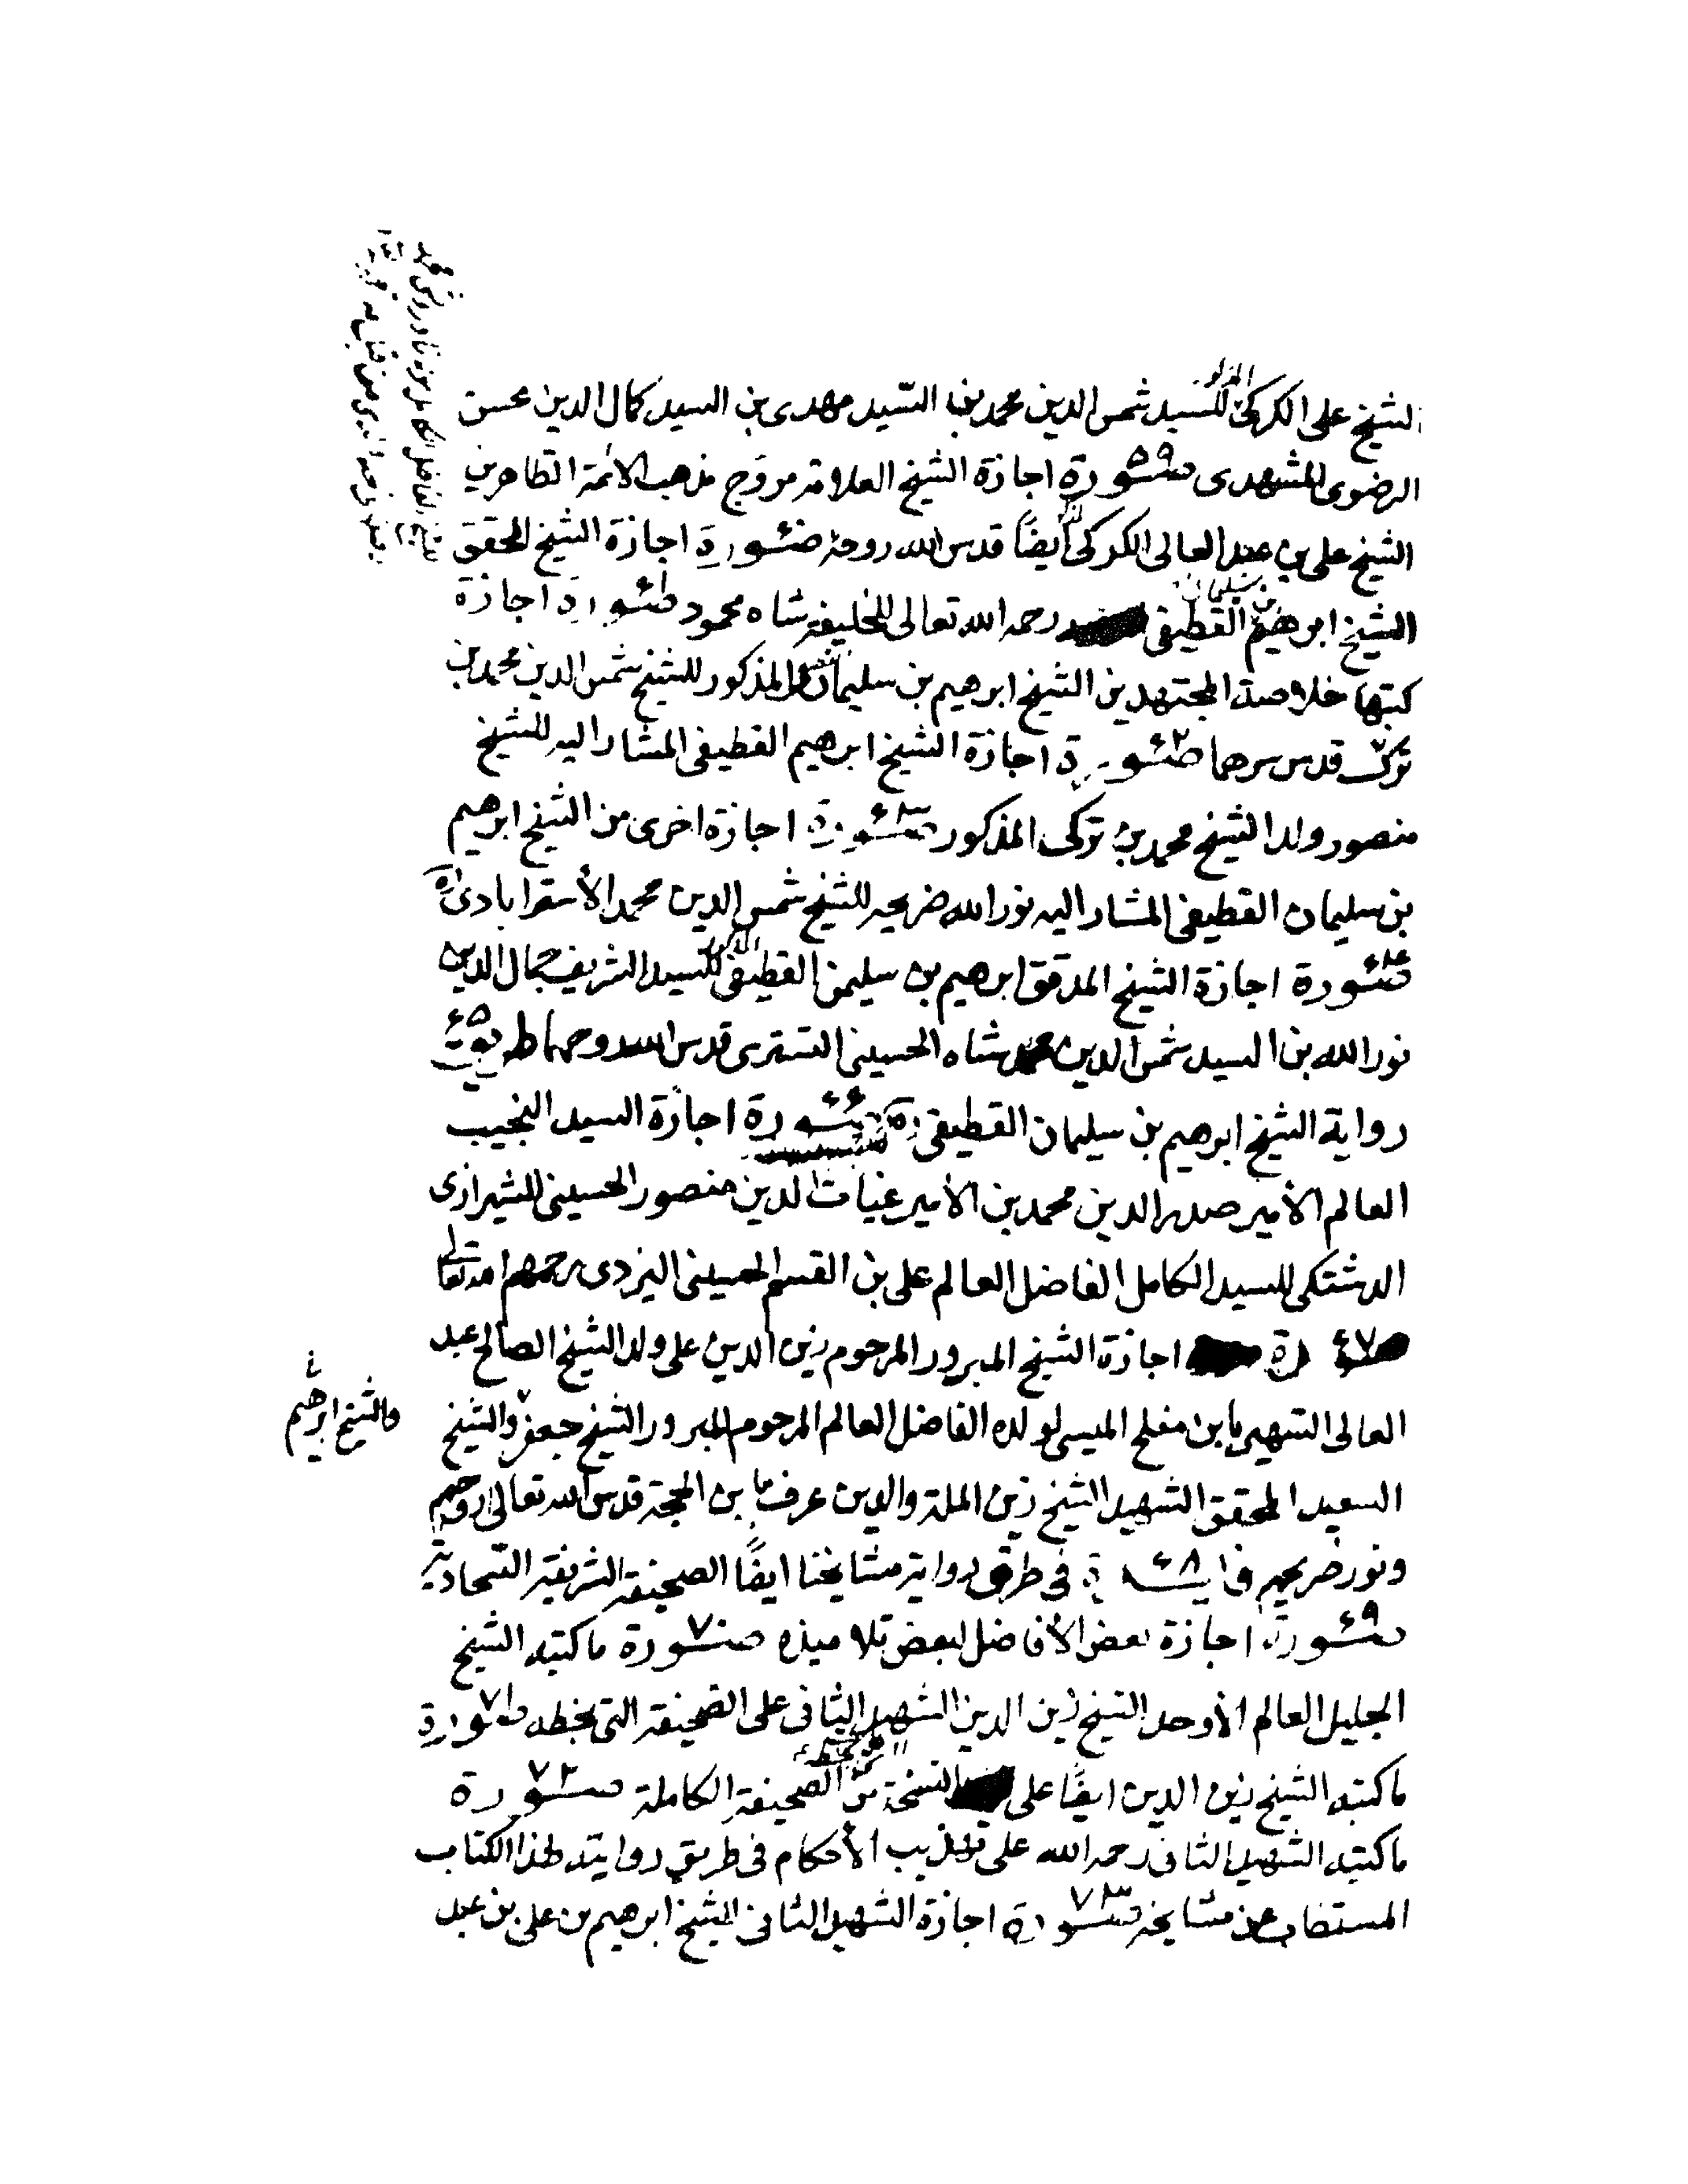 الشيخ على الكركى المولد للسيد شمس الدين محمد بن السّيد مهدى بن السيد كمال الدين محسن
الرضوى المشهدى صورة ٥٩ اجازة الشيخ العلامة مروّج مذهب الائمة الطاهرين
الشيخ على بن عبد العالى الكركى ايضًا قدس الله روحه صورة اجازة الشيخ المحقق
الشيخ ابرهيم بن سليمان القطيفى رحمه الله تعالى للخليفة شاه محمود صورة اجازة
كتبها خلاصة المجتهدين الشيخ ابرهيم بن سليمان المذكور للشيخ شمس الدين محمد بن
تركى قدس سرهما صورة اجازة الشيخ ابرهيم القطيفى المشار اليه للشيخ
منصور ولد الشيخ محمد بن تركى المذكور صورة اجازة اخرى من الشيخ ابرهيم
بن سليمان القطيفى المشار اليه نور الله ضريحه للشيخ شمس الدين محمد الأسترابادى ره
صورة اجازة الشيخ المدقق ابرهيم بن سليمن القطيفى المذكور للسيد الشريف جمال الدين
نور الله بن السيد شمس الدين محمد شاه الحسينى التسترى قدس الله روحهما ٦٥
رواية الشيخ ابرهيم بن سليمان القطيفى ره صورة ٦٦ اجازة السيد النجيب
العالم الأمير صدر الدين محمد بن الأمير غياث الدين منصور الحسينى الشيرازى
الدشتكى للسيد الكامل الفاضل العالم على بن القسم الحسينى اليزدى رحمهم الله تعالى
صورة ٦٧ اجازة الشيخ المبرور المرحوم زين الدين على ولد الشيخ الصالح عبد
العالى الشهير بابن مفلح الميسى لولده الفاضل العالم المرحوم المبرور الشيخ جعفر والشيخ
والشيخ ابرهيم
السعيد المحقق الشهيد الشيخ زين الملة والدين عرف بابن الحجة قدس الله تعالى ارواحهم
ونور ضريحهم ٦٨ فى طرق رواية مشايخنا ايضًا الصحيفة الشريفة السّجادية
صورة ٦٩ اجازة بعض الأفاضل لبعض تلاميذه صورة ٧٠ ما كتبه الشيخ
الجليل العالم الأوحد الشيخ زين الدين الشهيد الثانى على الصحيفة التى بخطه صورة ٧١
ما كتبه الشيخ زين الدين ايضًا على النسخة من الصحيفة الكاملة صورة ٧٢
ما كتبه الشهيد الثانى رحمه الله على تهذيب الأحكام فى طريق روايته لهذا الكتاب
المستطاب عن مشايخه صورة ٧٣ اجازة الشهيد الثانى للشيخ ابرهيم بن على بن عبد